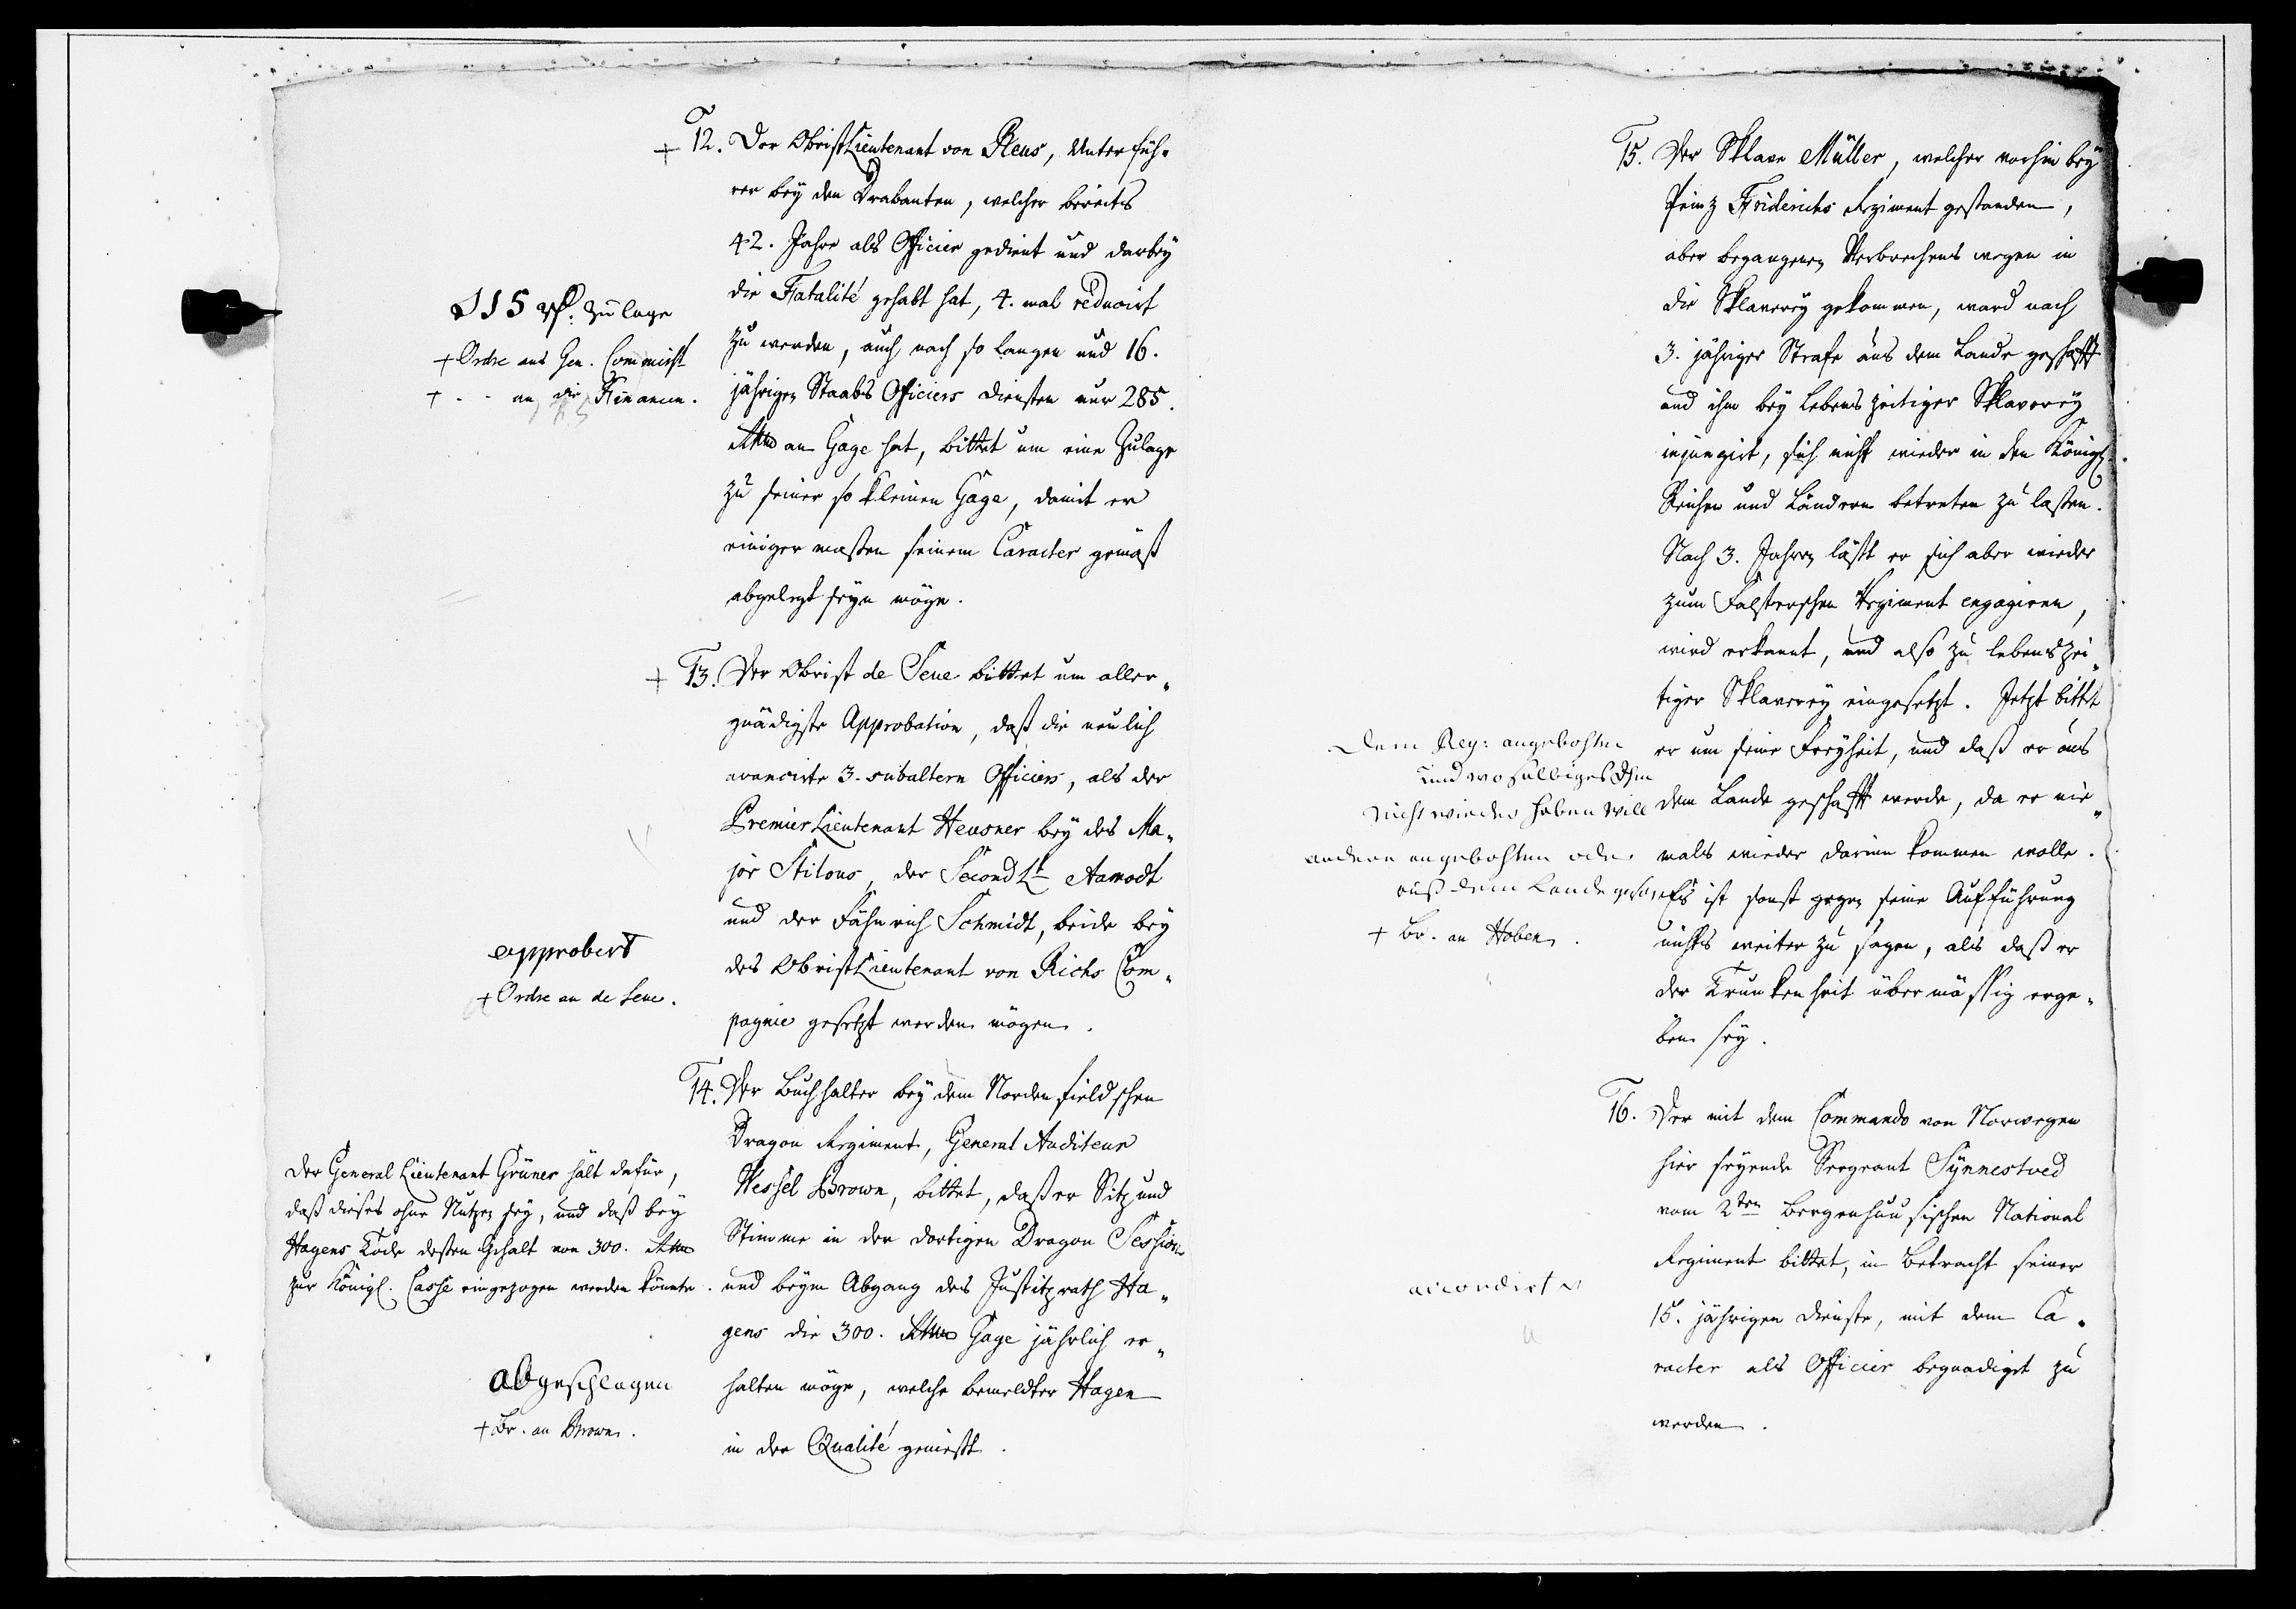 + 12. Der Obrist Lieutenant von Reus, Unter füh-
rer bey den Drabanten, welcher bereits
42. Jahre als Officier gedient und darbey
die Fatalité gehabt hat, 4. mal reducirt
zu werden, auch nach so langen und 16.
jährigen Staabs Officiers diensten nur 285.
Rthlr an Gage hat, bittet um eine Zulage
zu seiner so kleinen Gage, damit er
einiger maßen seinem Caracter gemäß
abgelegt seyn möge.
115 rthl: Zulage
+ Ordre ans Gen. Commiss.
+ - - an die Financen.
+ 13. Der Obrist de Seue bittet um aller-
gnädigste Approbation, daß die neulich
avancirte 3. subaltern Officiers, als der
Premier Lieutenant Heusner bey des Ma-
jor Stilous, der Second Lt Aamodt
und der Fähnrich Schmidt, beide bey
des Obrist Lieutenant von Richs Com-
pagnie gesetzt werden mögen.
approbert
+ Ordre an de Seue.
14. Der Buchhalter bey dem Nordenfieldschen
Dragon Regiment, General Auditeur
Wessel Brown, bittet, daß er Sitz und
Stimme in der dortigen Dragon Session
und beym Abgang des Justitzrath Ha-
gens die 300. Rthlr Gage jährlich er-
halten möge, welche bemeldter Hagen
in der Qualité genießt.
Der General Lieutenant Grüner hält dafür,
daß dieses ohne Nutzen sey, und daß bey
Hagens Tode deßen Gehalt von 300. Rthlr
zur Königl. Casse eingezogen werden könnte.
abgeschlagen
+ Br. an Brown.
15. Der Sklave Müller, welcher vorhin bey
Prinz Friderichs Regiment gestanden,
aber begangenen Verbrechens wegen in
die Sklaverey gekommen, ward nach
3. jähriger Strafe aus dem Lande geschafft
und ihm bey lebenszeitiger Sklaverey
injungirt, sich nicht wieder in den Königl.
Reichen und Ländern betreten zu laßen.
Nach 3. Jahren läßt er sich aber wieder
zum Falsterschen Regiment engagiren,
wird erkannt, und also zu lebenszei-
tiger Sklaverey eingesetzt. Jetzt bittet
er um seine Freyheit, und daß er aus
dem Lande geschafft werde, da er nie-
mals wieder darinn kommen wolle.
Es ist sonst gegen seine Aufführung
nichts weiter zu sagen, als daß er
der Trunkenheit übermäßig erge-
ben sey.
Dem Reg: angebohten
und wo selbiges Ihn
nicht wieder haben will
andern angebohten oder
auß dem Lande
+ Br. an Hoben.
16. Der mit dem Commando von Norwegen
hier seyende Sergeant Synnestved
vom 2ten Bergenhuusischen National
Regiment bittet, in Betracht seiner
15. jährigen Dienste, mit dem Ca-
racter als Officier begnadigt zu
werden.
accordirt